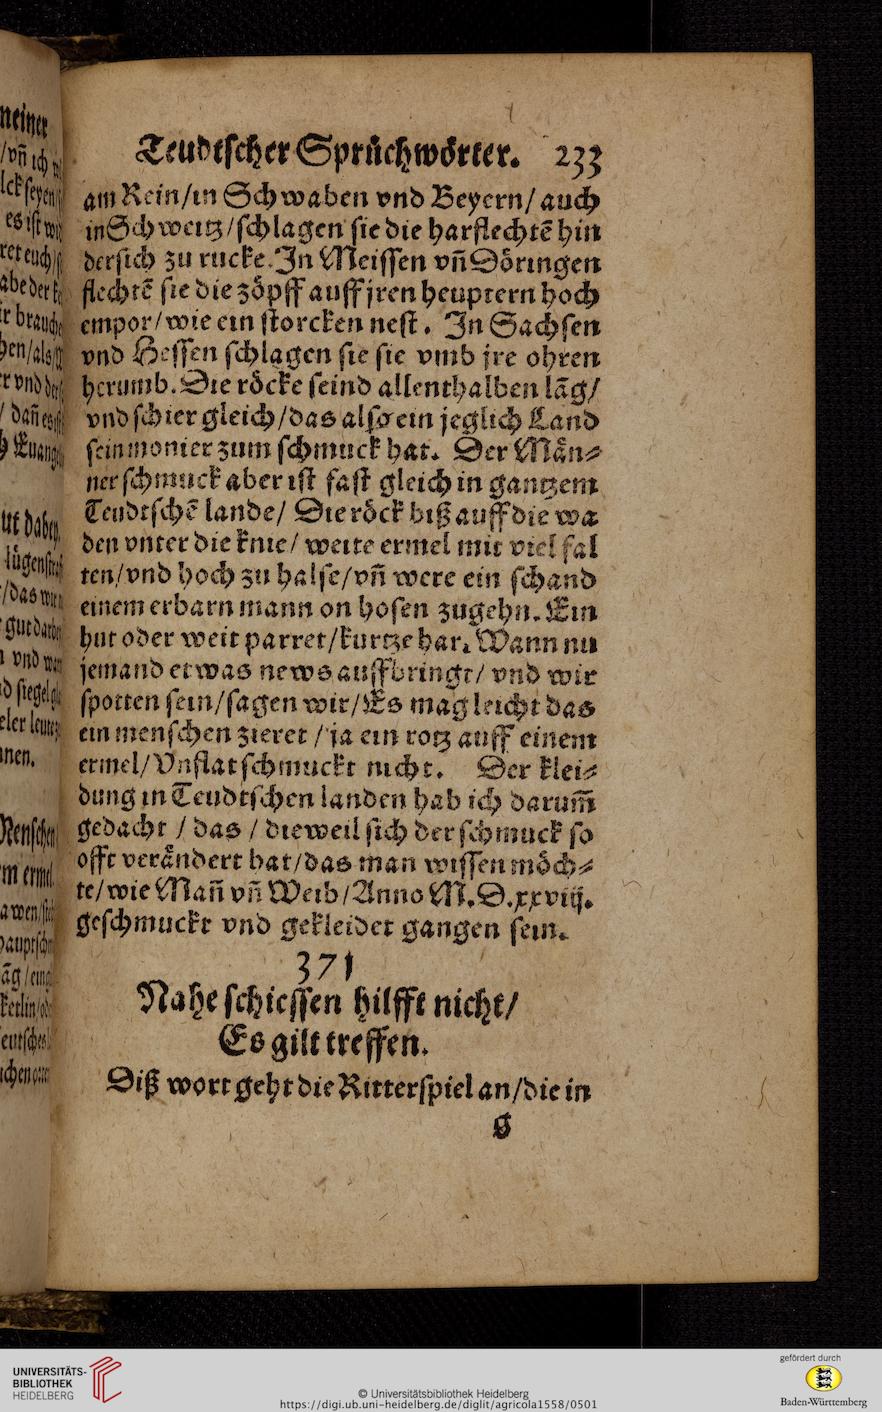 Teudtſcher Sprüchwörter. 233
am Rein/in Schwaben vnd Beyern/auch
in Schweitz/ſchlagen ſie die harflechtẽ hin
derſich zu rucke. In Meiſſen vñ Döringen
flechtẽ ſie die zöpff auff jren heuptern hoch
empor/wie ein ſtorcken neſt. In Sachſen
vnd Heſſen ſchlagen ſie ſie vmb jre ohren
herumb. Die röcke ſeind allenthalben lãg/
vnd ſchier gleich/das alſo ein jeglich Land
ſein monier zum ſchmuck hat. Der Män⸗
ner ſchmuck aber iſt faſt gleich in gantzem
Teudtſchẽ lande/ Die röck biß auff die wa
den vnter die knie/ weite ermel mit viel fal
ten/vnd hoch zu halſe/vñ were ein ſchand
einem erbarn mann on hoſen zugehn. Ein
hut oder weit parret/kurtze har. Wann nu
jemand etwas news auffbringt/ vnd wir
ſpotten ſein/ſagen wir/Es mag leicht das
ein menſchen zieret /ja ein rotz auff einem
ermel/Vnflat ſchmuckt nicht. Der klei⸗
dung in Teudtſchen landen hab ich darum̃
gedacht / das / dieweil ſich der ſchmuck ſo
offt verändert hat/das man wiſſen möch⸗
te/wie Mañ vñ Weib/Anno M.D.xxviij.
geſchmuckt vnd gekleidet gangen ſein.
371
Nahe ſchieſſen hilfft nicht/
Es gilt treffen.
Diß wort geht die Ritterſpiel an/die in
g
UNIVERSITÄTS-
BIBLIOTHEK
HEIDELBERG
© Universitätsbibliothek Heidelberg
https://digi.ub.uni-heidelberg.de/diglit/agricola1558/0501
gefördert durch
Baden-Württemberg